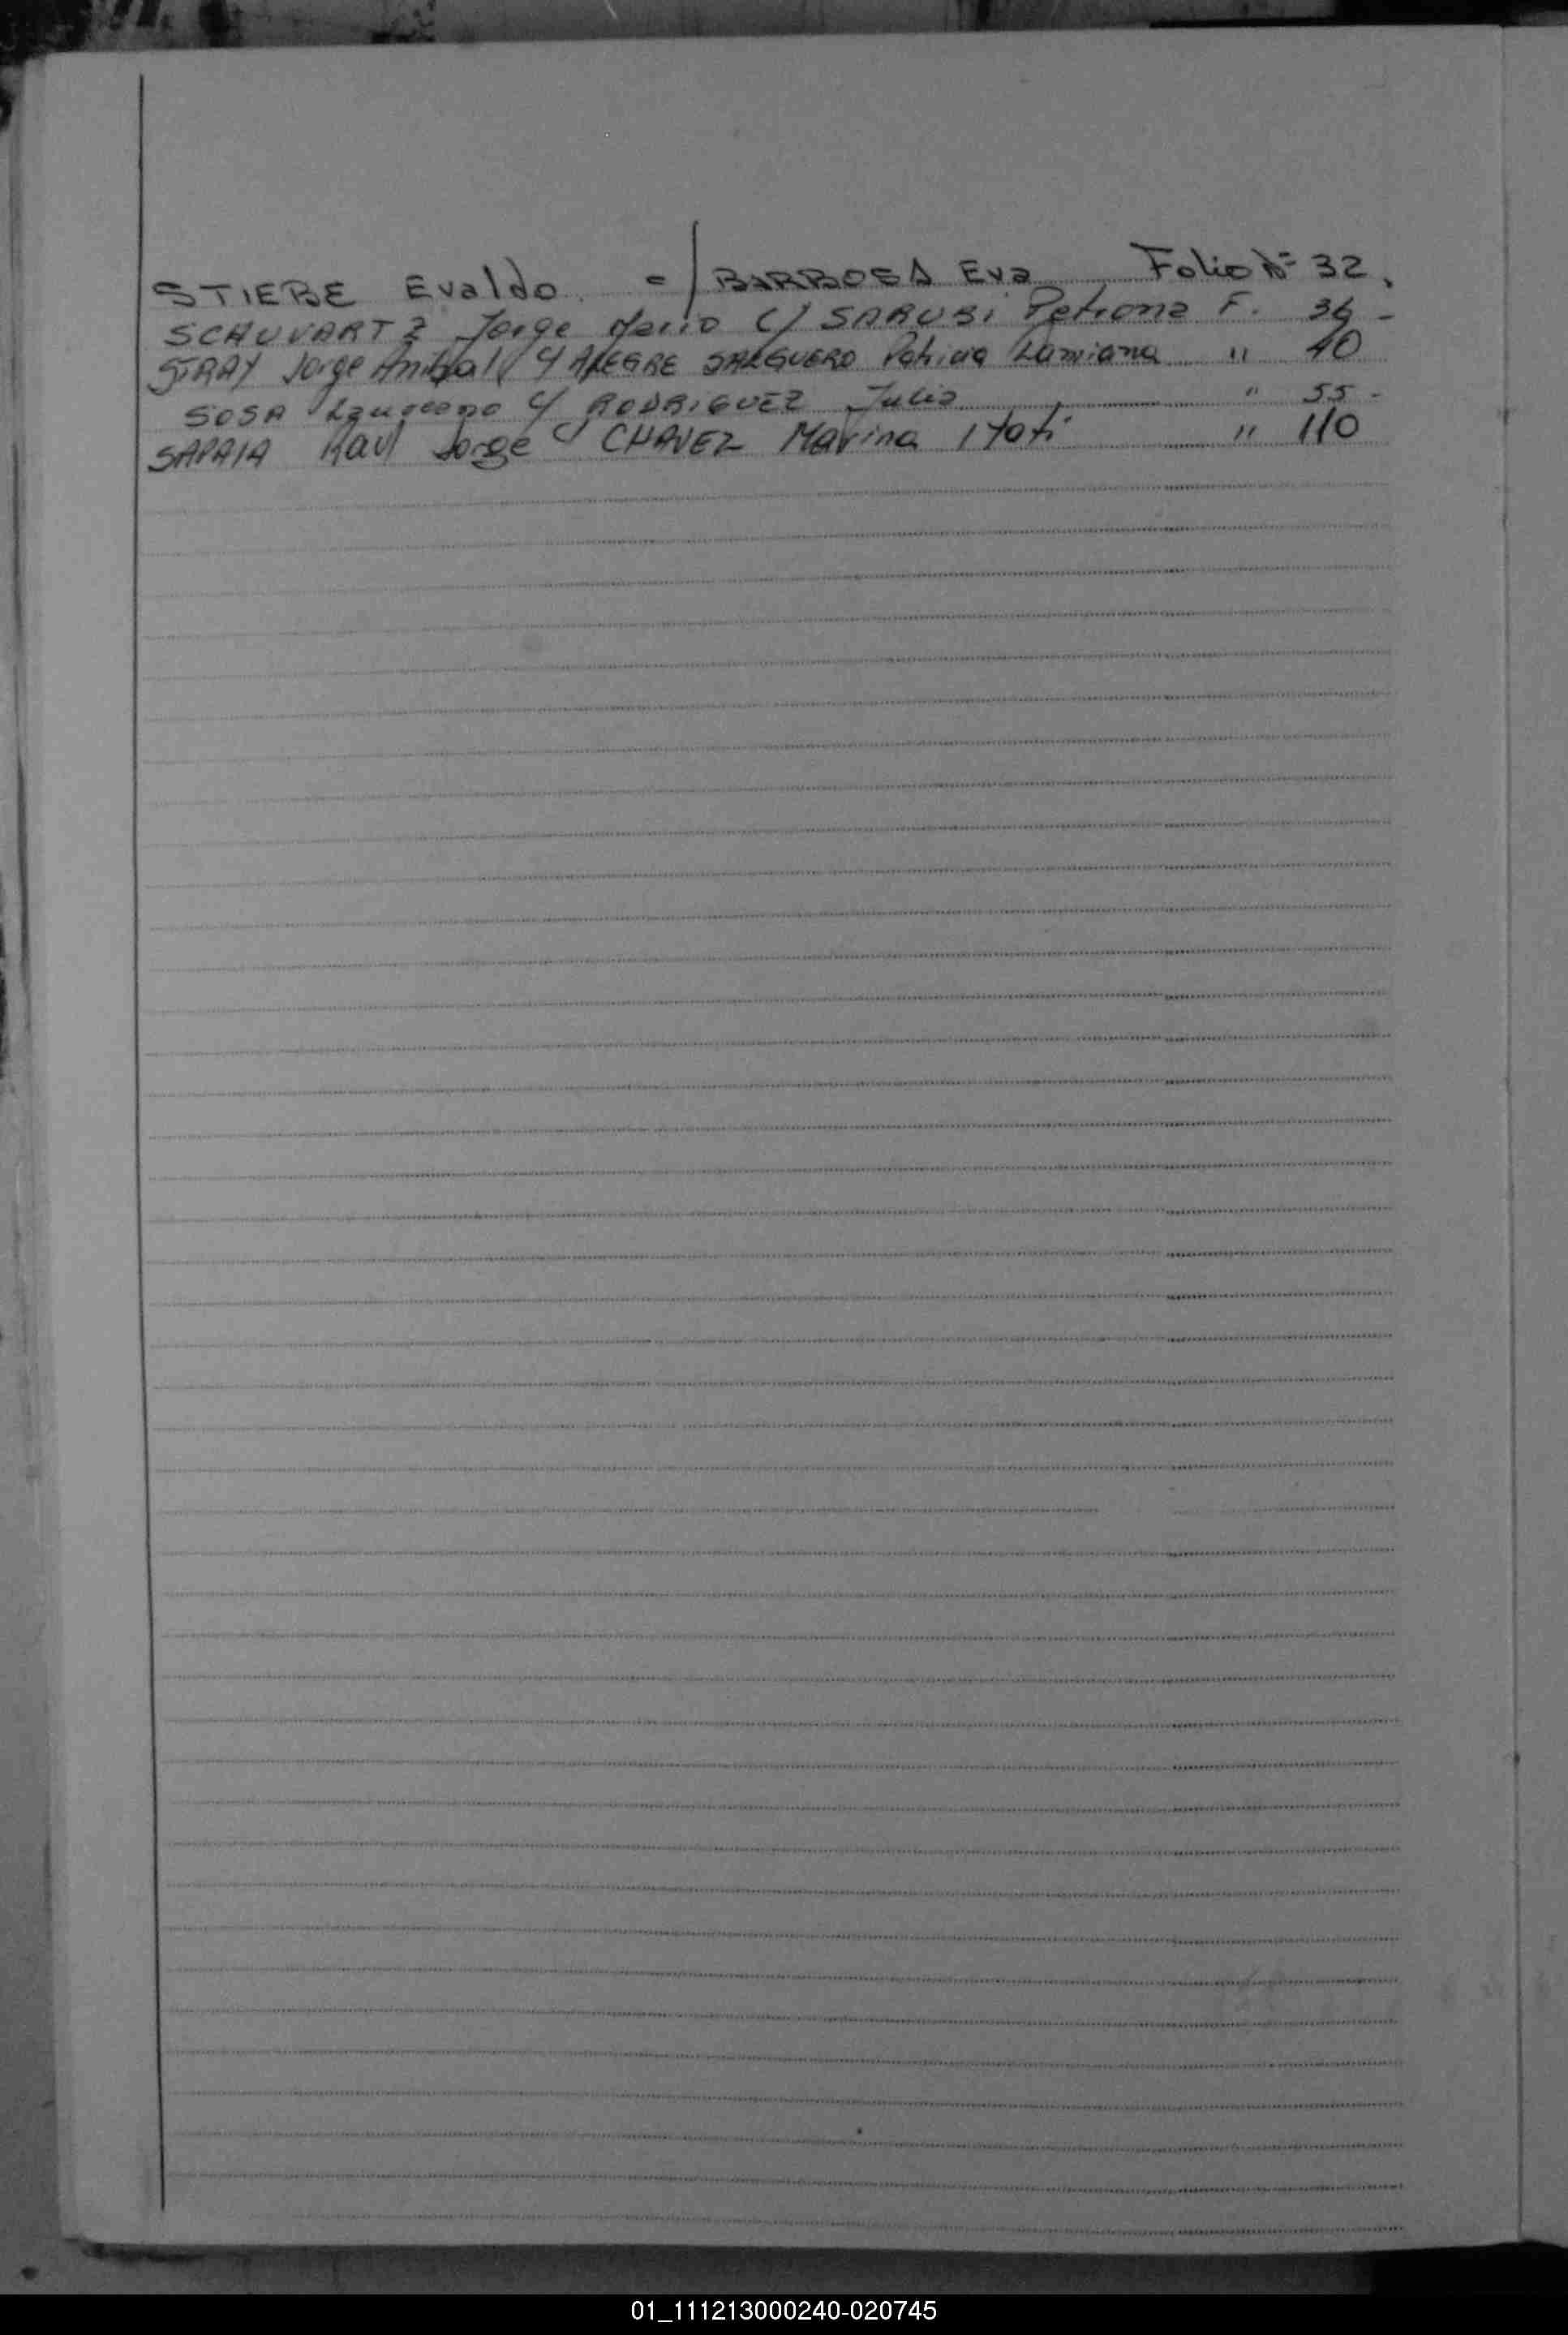 STIEBE Evaldo. c/ BARBOSA Eva Folio Nº 32.
SCAUVART Z Jorge Mario C/ SARUBI Petrona F. 36 -
STRAY Jorge Anibal C/ ALEGRE SALGUERO Patricia Damiana " 40
SOSA Laureano C/ RODRIGUEZ Julia " 55 -
SAPAIA Raul Jorge C/ CHAVEZ Marina Itati " 110
01_111213000240-020745